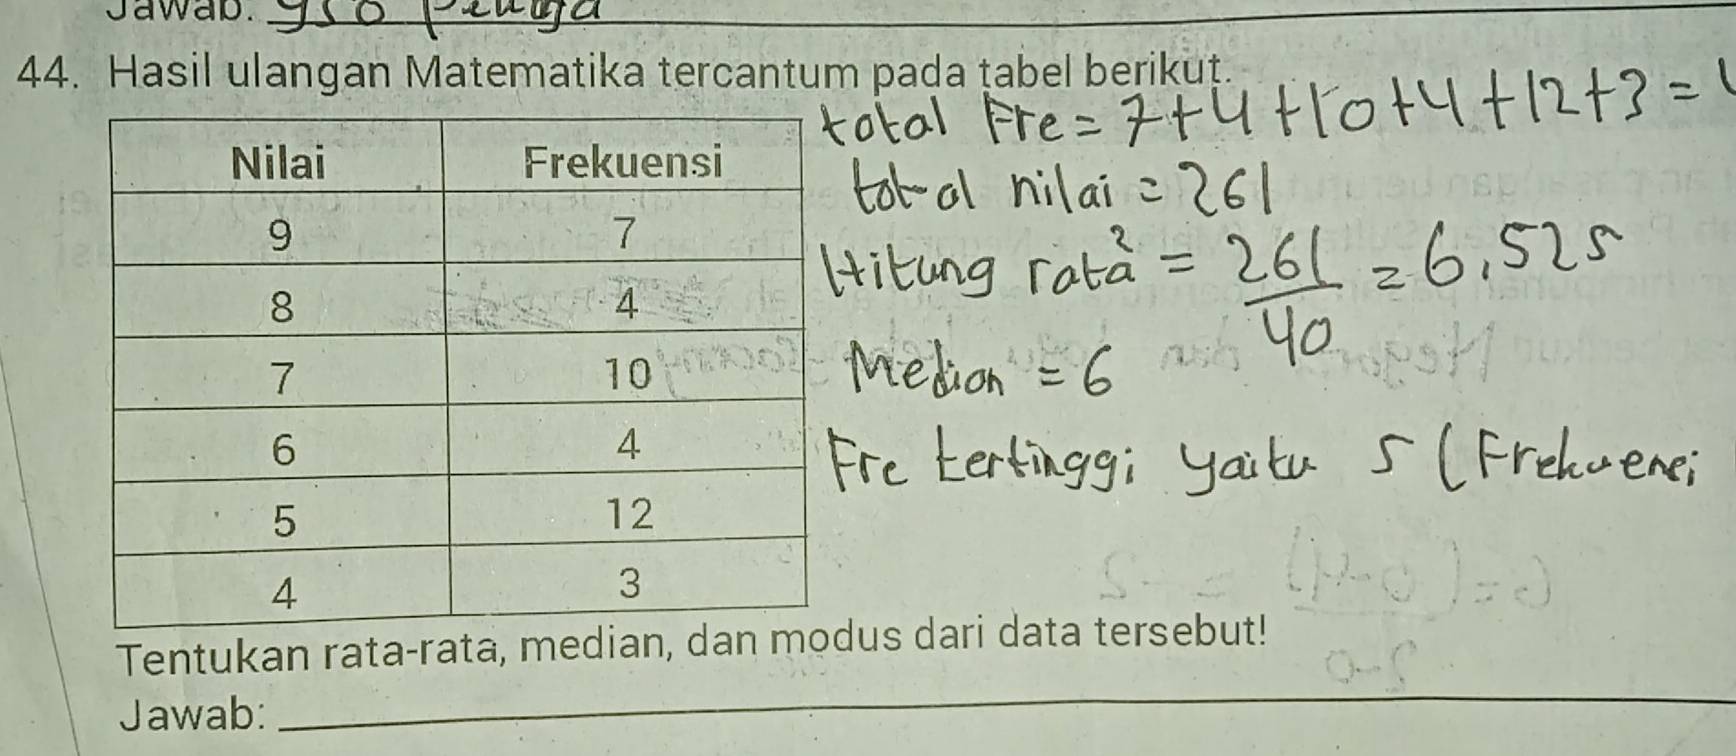 Jawab:
44. Hasil ulangan Matematika tercantum pada tabel berikut.
total Fre = 7+4+10+4+12+3 =
Nilai Frekuensi
total nilai = 261
9 7
Hitung rata² = 261/40 = 6,525
8 4
7 10
Median = 6
6 4
Fre tertinggi yaitu 5 (Frekuensi
5 12
4 3
Tentukan rata-rata, median, dan modus dari data tersebut!
Jawab: